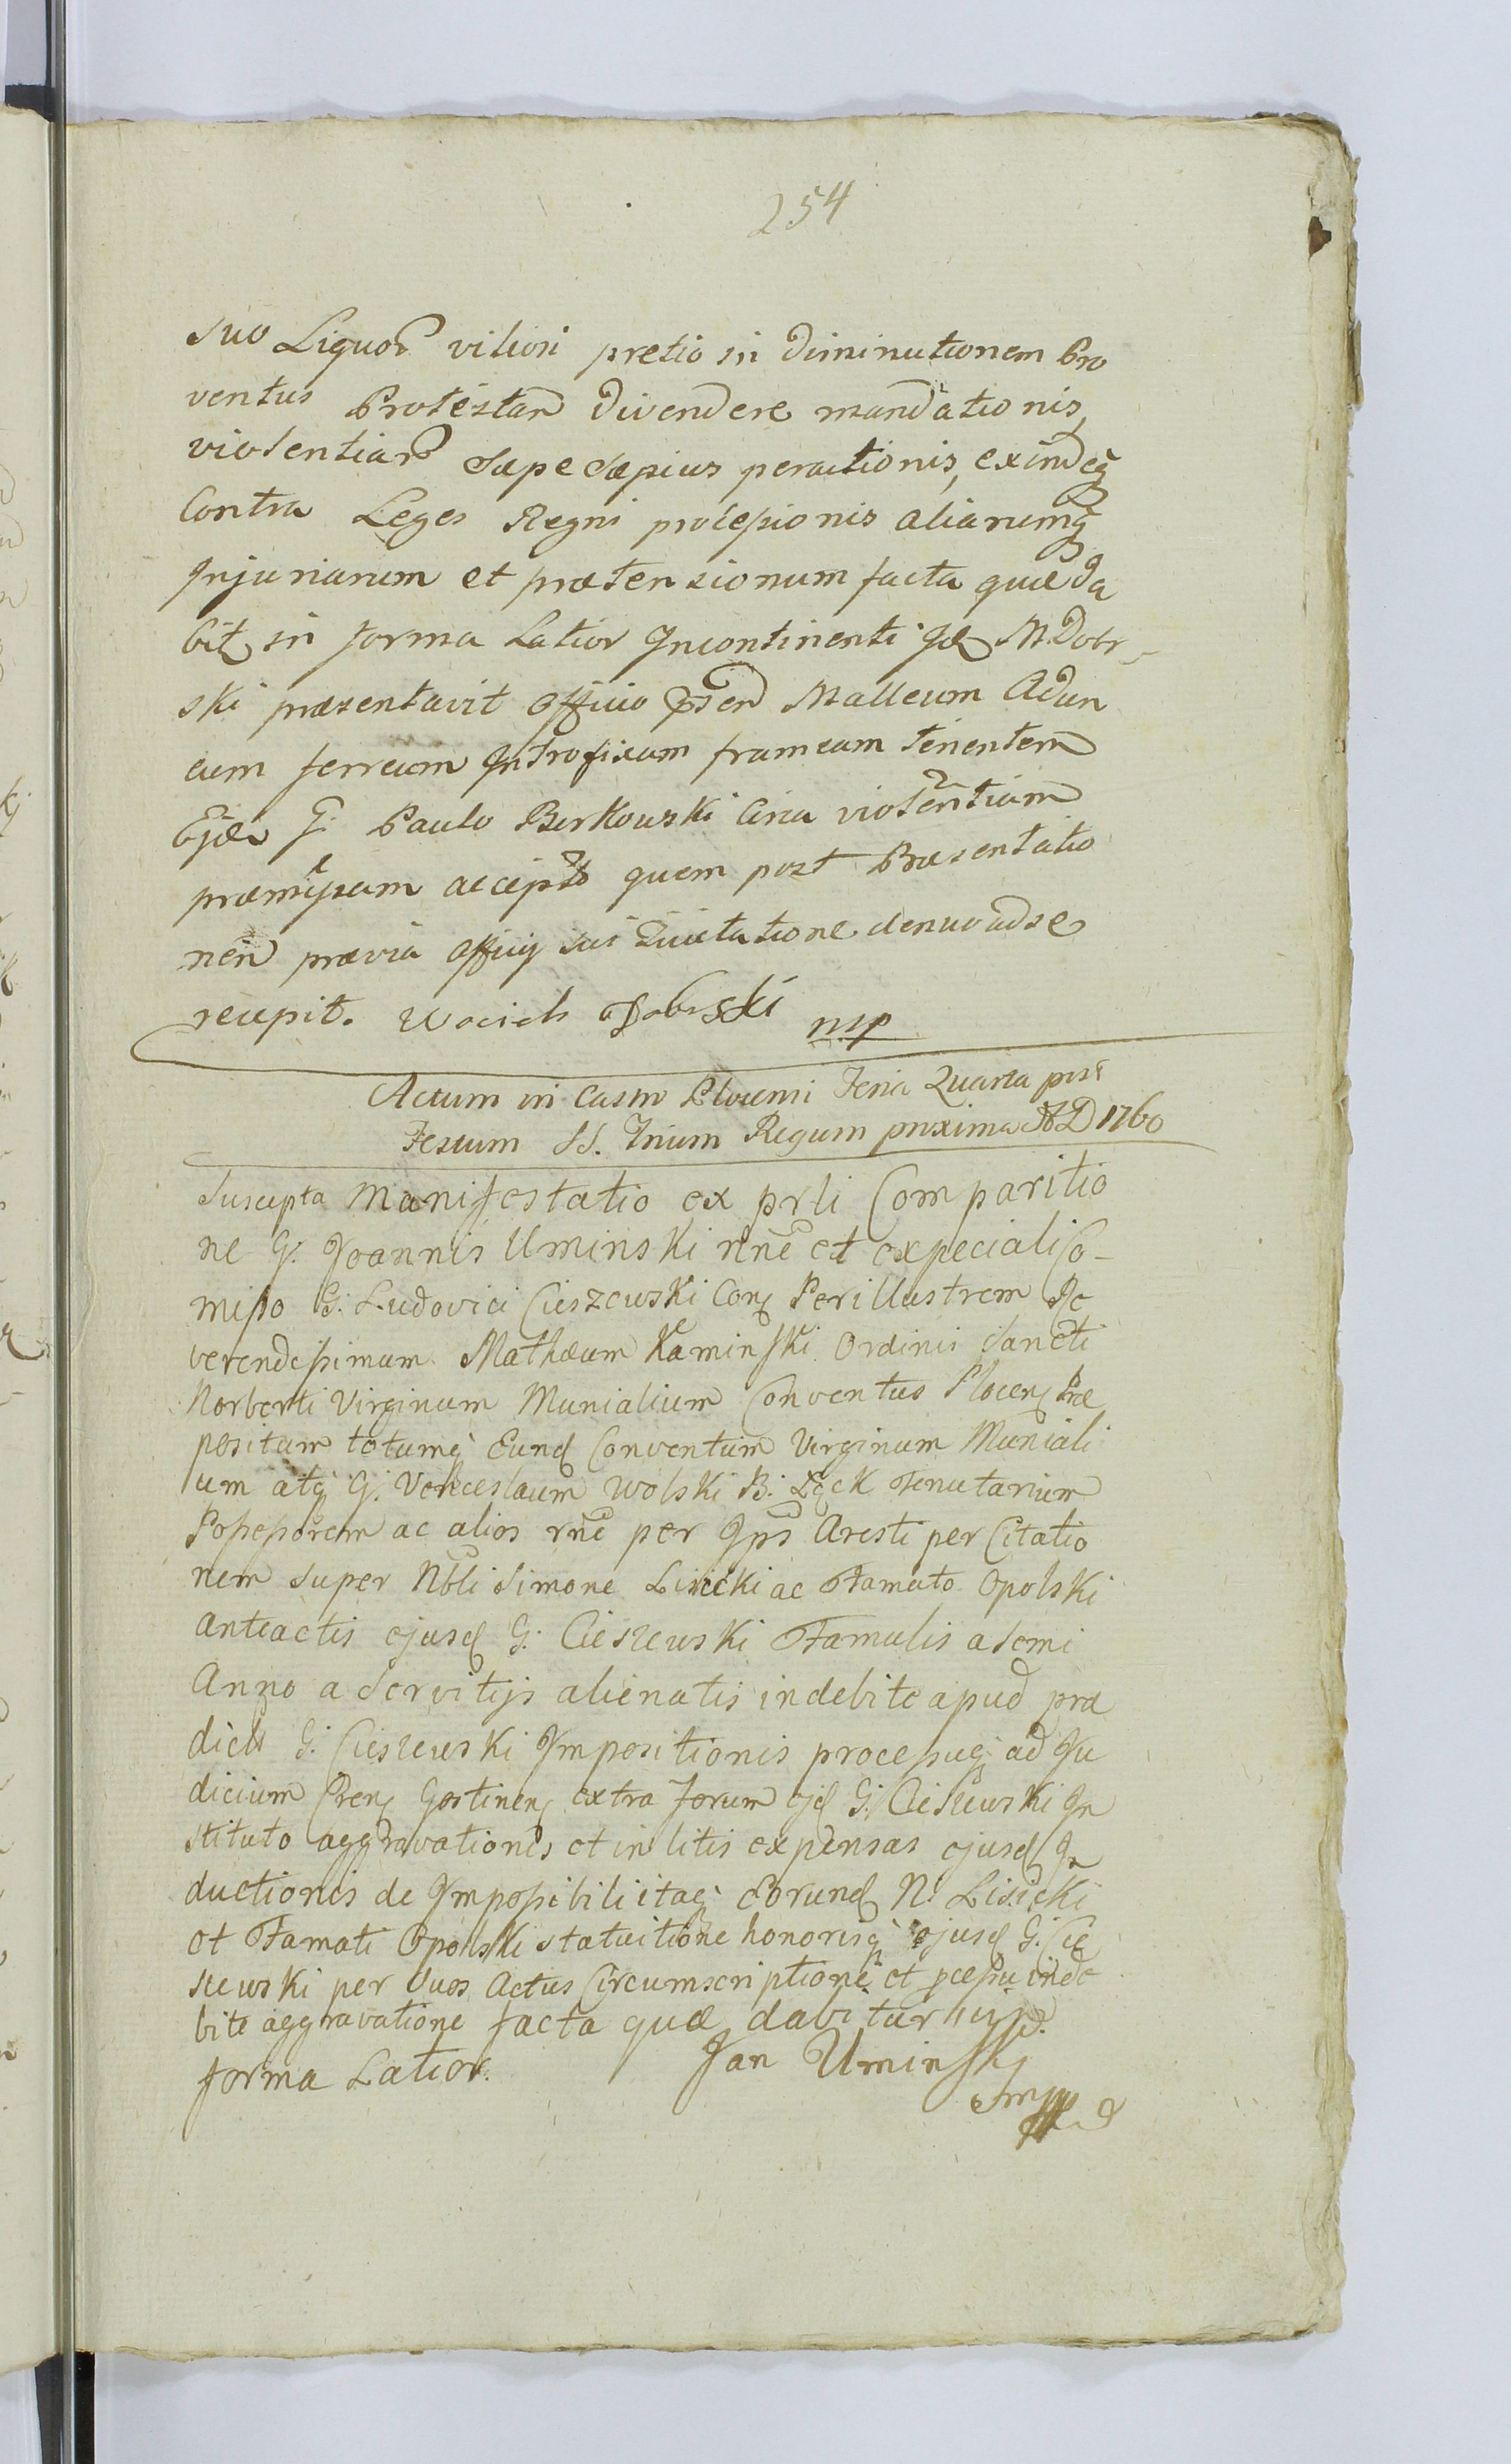 254
suo Liquor viliori pretio in diminutionem Pro
ventus Protestan divendere mandationis,
violentiar saepe saepius peractionis, exindeq
Contra Leges Regni processionis aliarumq
Injuriarum et praetensionum facta quae da
bit in forma Latior Incontinenti Jd M. Dobr
ski praesentavit Officio psen Malleum Adun
cum ferreum Introfixum frameam tenentem
Ejd G. Paulo Borkowski Circa violentiam
praemissam accepto quem post Praesentatio
nem praevia officij sui Quietatione denuo ad se
recepit. Woiciech Dobrski mp
Actum in Castro Plocensi Feria Quarta post
Festum SS. Trium Regum proxima AD 1760
Suscepta Manifestatio ex prli Comparitio
ne G. Joannis Uminski nne et ex speciali Co-
misso G. Ludovici Cieszewski Con Perillustrem Re
verendissimum Mathaeum Kaminski Ordinis Sancti
Norberti Virginum Munialium Conventus Plocen Prae
positum totumq Eund Conventum Virginum Muniali
um atq G. Venceslaum Wolski B. Łęck Tenutarium
Possessorem ac alios rne per Ipss Aresti per Citatio
nem super Nbli Simone Lisicki ac Famato Opolski
anteactis ejusd G. Cieszewski Famulis a semi
Anno a Servitijs alienatis indebite apud prae
dict G. Cieszewski Impositionis processuq ad Ju
dicium Cren Gostinen extra forum ejd G. Cieszewski In
stituto aggravationes et in litis expensas ejusd In
ductionis de Impossibilitaq Eorund N. Lisicki
et Famati Opolski statuitione honorisq ejusd G. Cie
szewski per suos Actus Circumscriptione et pcessu inde
bite aggravatione facta quae dabitur
forma Latior. Jan Uminski
mpp